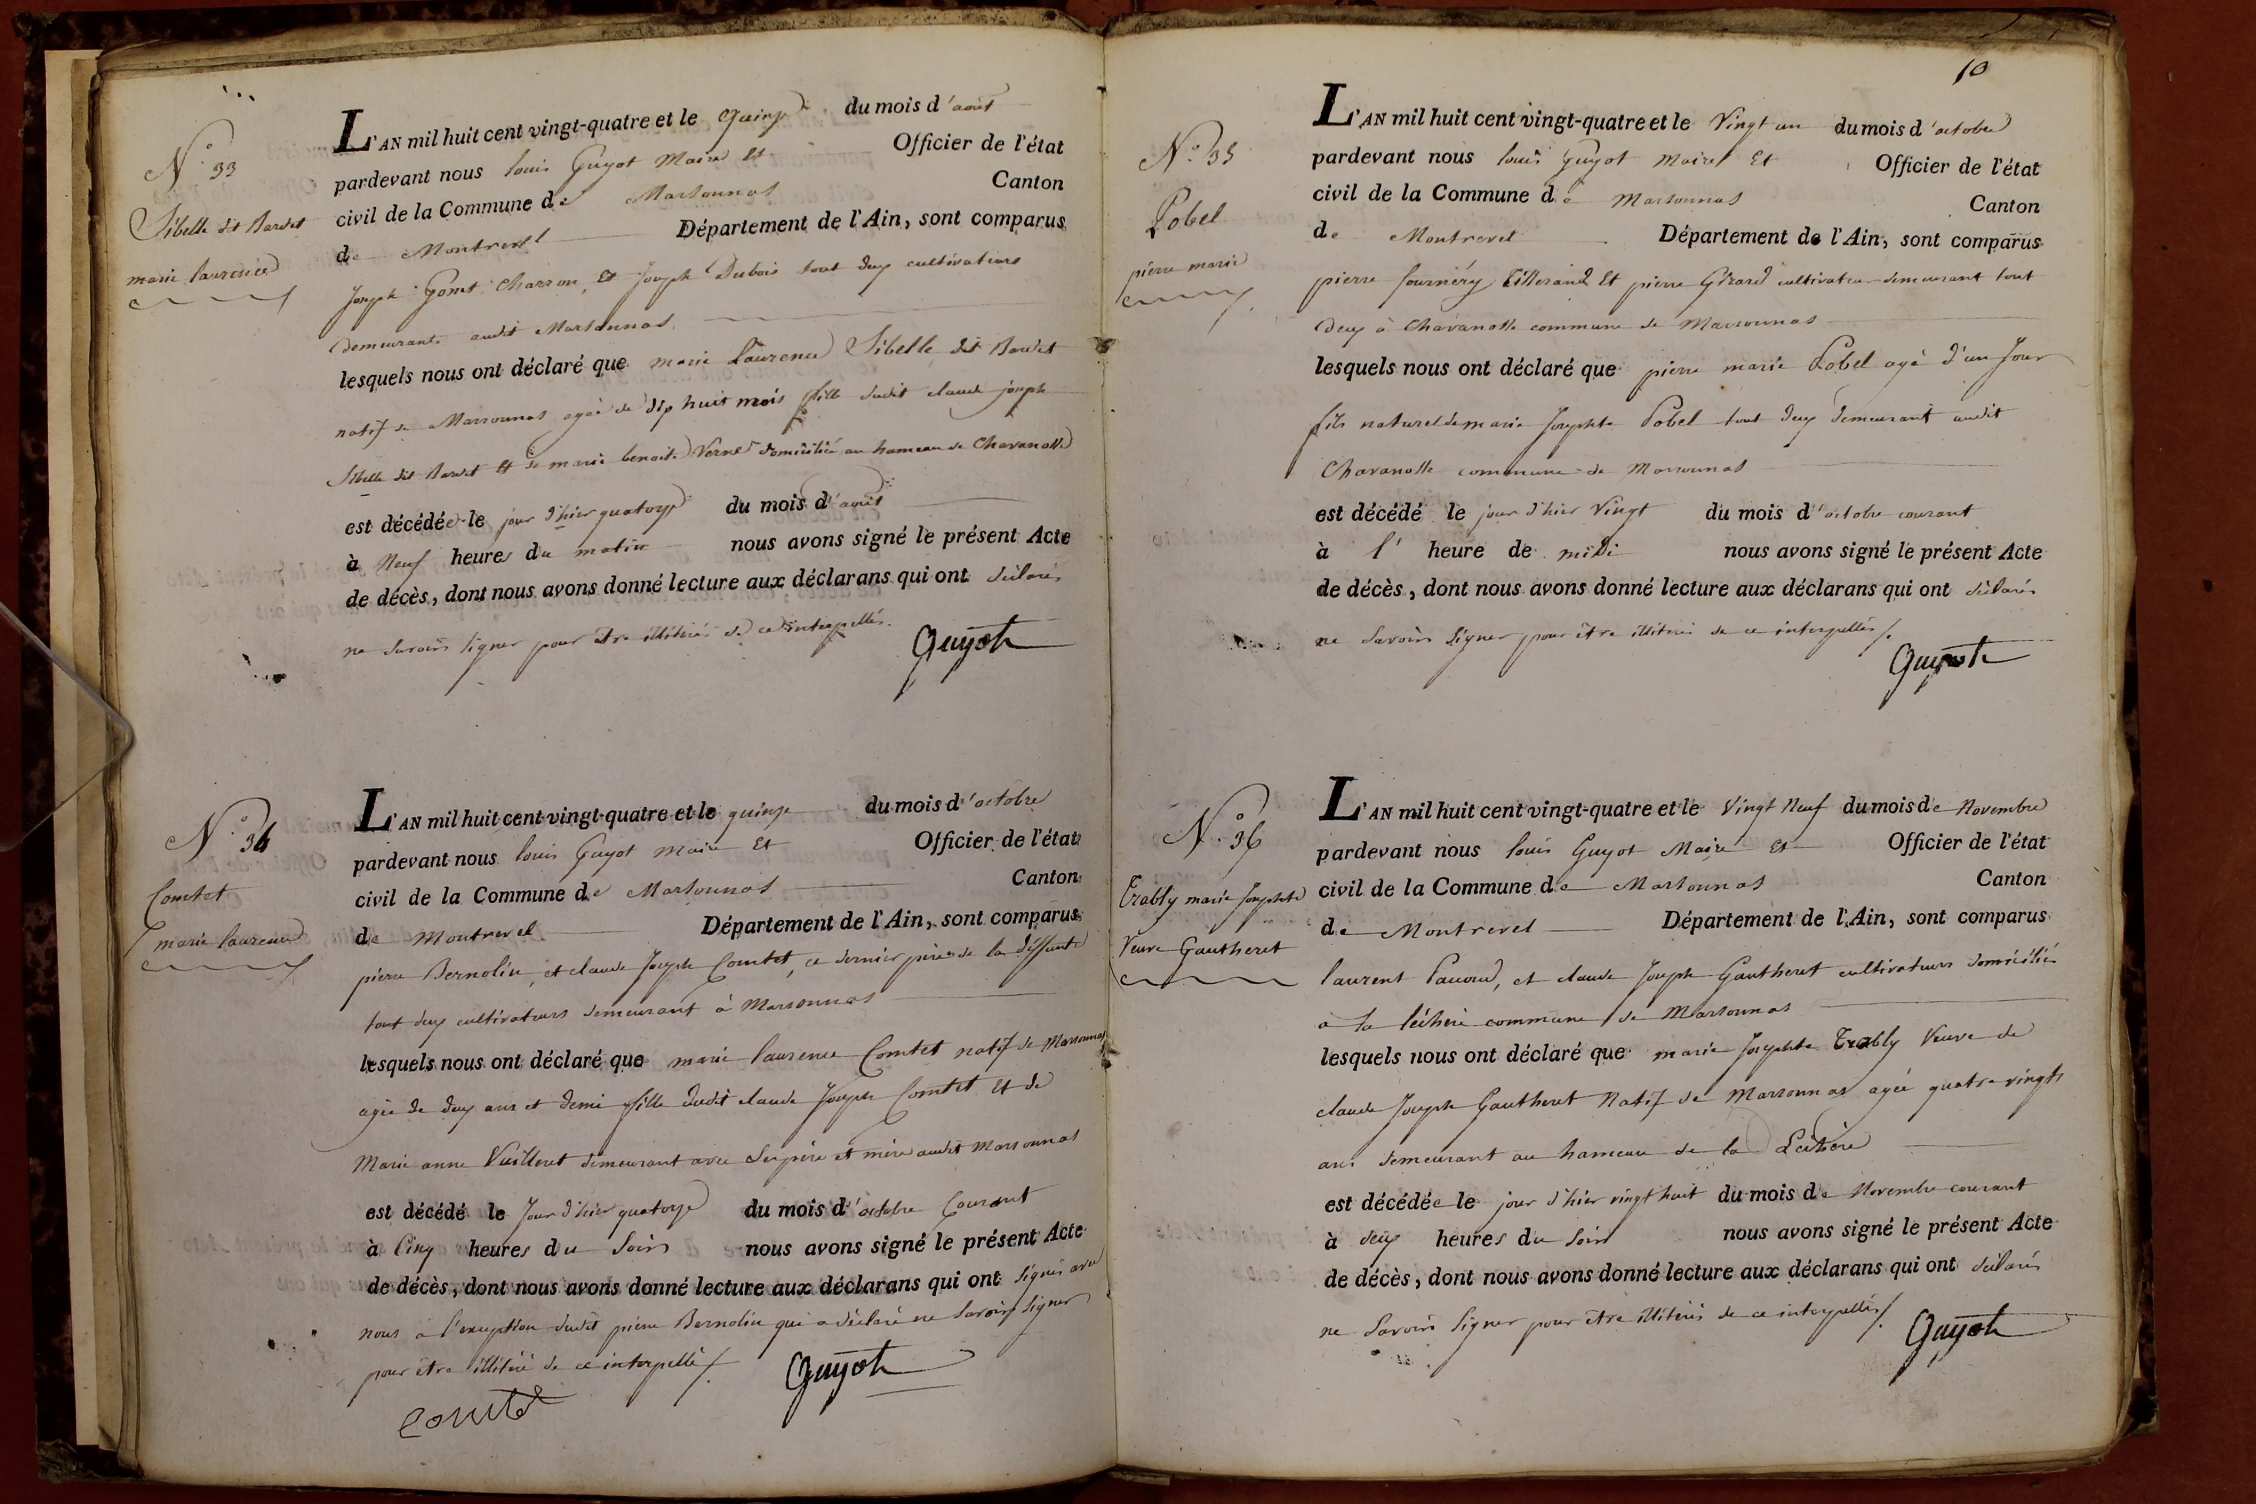 N.° 33
Sibelle dit Bardet
marie laurence
L'AN mil huit cent vingt-quatre et le quinze du mois d'août
pardevant nous louis Guyot Maire et Officier de l'état
civil de la Commune de Marsonnas Canton
de Montrevel Département de l'Ain, sont comparus
Joseph Gonet charron, et Joseph Dubois tout deux cultivateurs
demeurants audit Marsonnas.
lesquels nous ont déclaré que marie Laurence Sibelle dit Bardet
natif de Marsonnas agée de dix huit mois fille dudit claude joseph
Sibelle dit Bardet et de marie benoite Verne domicilié au hameau de Chavanosse
est décédée le jour d'hier quatorze du mois d'août
à Neuf heures du matin nous avons signé le présent Acte
de décès, dont nous avons donné lecture aux déclarans qui ont déclarés
ne savoirs signer pour être illitérés de ce interpellés.
Guyot
N.° 34
Comtet
marie laurence
L'AN mil huit cent vingt-quatre et le quinze du mois d'octobre
pardevant nous louis Guyot Maire et Officier de l'état
civil de la Commune de Marsonnas Canton
de Montrevel Département de l'Ain, sont comparus
pierre Bernolin, et claude Joseph Comtet, ce dernier père de la deffunte
tout deux cultivateurs demeurant à Marsonnas
lesquels nous ont déclaré que marie laurence Comtet natif de Marsonnas
agée de deux ans et demi fille dudit claude Joseph Comtet et de
Marie anne Vuilleret demeurant avec ses père et mère audit Marsonnas
est décédé le Jour d'hier quatorze du mois d'octobre Courant
à Cinq heures du Soirs nous avons signé le présent Acte
de décès, dont nous avons donné lecture aux déclarans qui ont signés avec
nous a l'exception dudit pierre Bernolin qui a déclaré ne savoirs signer
pour être illitéré de ce interpellé /.
Guyot
Comtet
10
N.° 35
Pobel
pierre marie
L'AN mil huit cent vingt-quatre et le Vingt un du mois d'octobre
pardevant nous louis Guyot Maire et Officier de l'état
civil de la Commune de Marsonnas Canton
de Montrevel Département de l'Ain, sont comparus
pierre fournéry Tillerand et pierre Gérard cultivateur demeurant tout
deux à Chavanosse commune de Marsonnas
lesquels nous ont déclaré que pierre marie Pobel agé d'un Jour
fils naturel de marie Josephte Pobel tout deux demeurant audit
Chavanosse commune de Marsonnas
est décédé le jour d'hier Vingt du mois d'octobre courant
à l' heure de midi nous avons signé le présent Acte
de décès, dont nous avons donné lecture aux déclarans qui ont déclarés
ne savoirs signer pour être illitérés de ce interpellés /.
Guyot
N.° 36
Trably marie Josephte
Veuve Gautheret
L'AN mil huit cent vingt-quatre et le Vingt Neuf du mois de Novembre
pardevant nous louis Guyot Maire et Officier de l'état
civil de la Commune de Marsonnas Canton
de Montrevel Département de l'Ain, sont comparus
laurent Pauoud, et claude Joseph Gautheret cultivateurs domiciliés
à la léchère commune de Marsonnas
lesquels nous ont déclaré que marie Josephte Trably Veuve de
claude Joseph Gautheret Natif de Marsonnas agée quatre vingts
ans demeurant au hameau de la Léchère
est décédée le jour d'hier vingt huit du mois de Novembre courant
à deux heures du soir nous avons signé le présent Acte
de décès, dont nous avons donné lecture aux déclarans qui ont déclarés
ne savoirs signer pour être illitérés de ce interpellés /.
Guyot